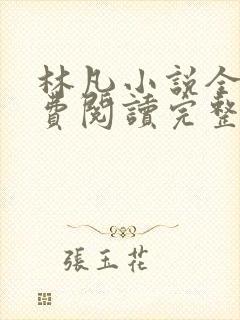 林凡小説全
費閱讀完整
張玉花